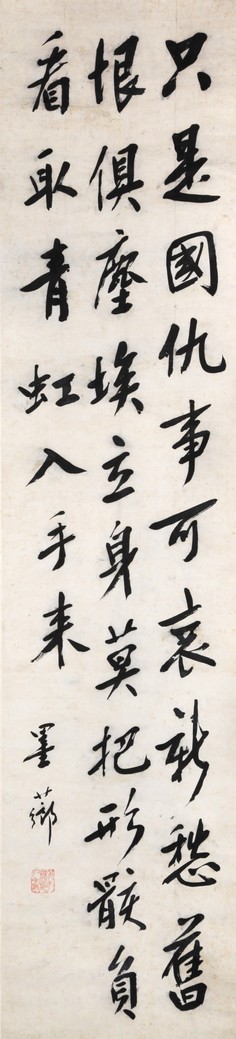 只是國仇事可哀新愁舊
恨俱塵埃立身莫把形骸負
看取青虹入手來
墨薌